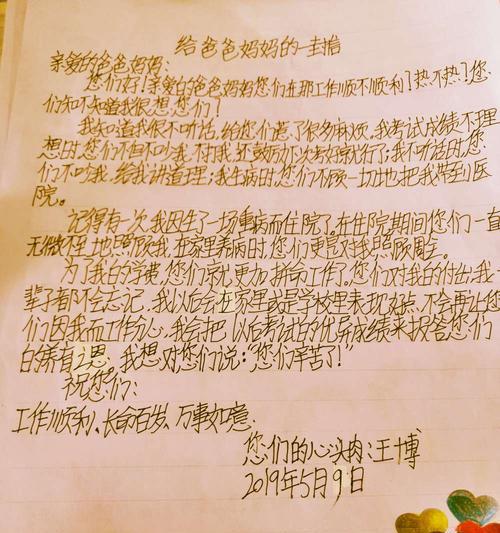 给爸爸妈妈的一封信
亲爱的爸爸妈妈:
您们好!亲爱的爸爸妈妈您们在那工作顺不顺利?热不热?您
们知不知道我很想您们?
我知道我很不听话,给您们惹了很多麻烦,我考试成绩不理
想时,您们不但不吵我,不打我,还鼓励我下次考好就行了;我不听话时,您
们不吵我,给我讲道理;我生病时,您们不顾一切地把我带到医
院。
记得有一次,我因生了一场重病而住院了。在住院期间您们一直
无微不至地照顾我,在家里养病时,您们更是对我照顾周全。
为了我的学费,您们就更加拼命工作了。您们对我的付出,我一
辈子都不会忘记,我以后会在家里或是学校里表现好点,不会再让您
们因我而工作分心,我会把以后考试的优异成绩来报答您们
的养育之恩。我想对您们说:"您们辛苦了!"
祝您们:
工作顺利、长命百岁、万事如意.
您们的心头肉:王博
2019年5月9日